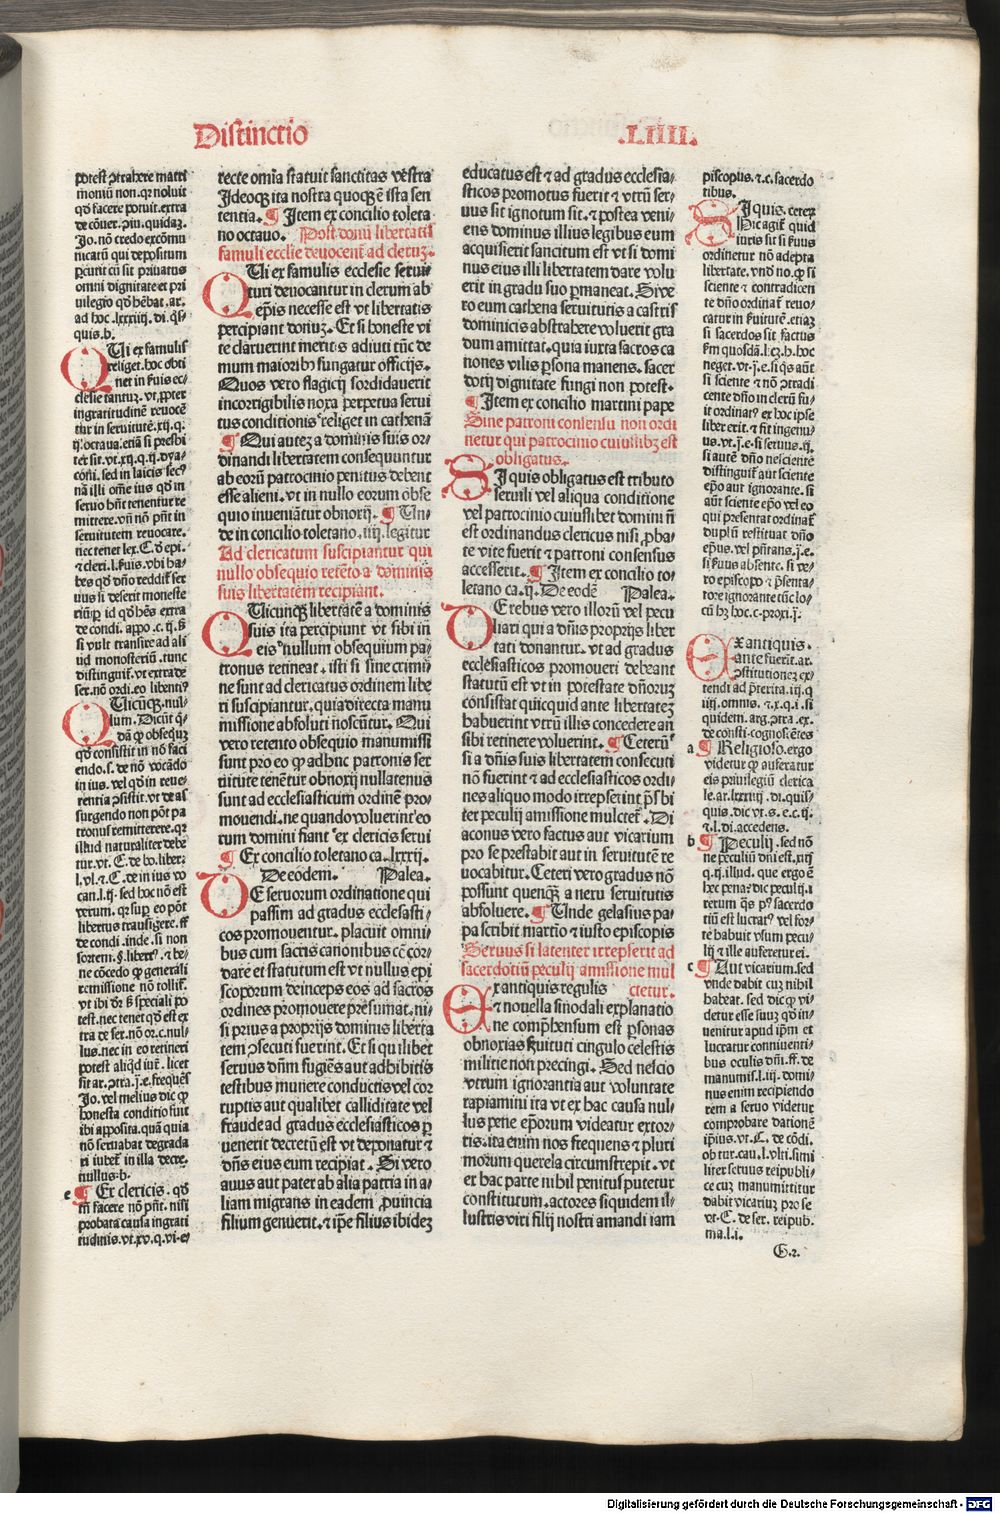 Distinctio .LIIII.
potest ꝯtrahere matri
moniū non.qꝛ noluit
qd̓ facere potuit.extra
de cōuer.p̄iu.quidaꝫ.
Jo.nō credo excōmu
nicatū qui depositum
ꝑcurit cū sit priuatus
omni dignitate et pri
uilegio qd̓ hēbat.ar.
ad hoc.lxxxiiij.di.qͥs⸗
quis.b.
QUi ex famulis
religet.hoc obti
net in ẜuis ec⸗
clesie tantuꝫ.vt ꝓpter
ingratitudinē reuocē
tur in seruitutē.xij.q.
ij.octaua.etiā si presbi
ter sit.vt.xij.q.ij.dya⸗
coni.sed in laicis secꝰ
nā illi om̄e ius qd̓ in
seruo hn̄t tenentur re
mittere.vn̄ nō pn̄t in
seruitutem reuocare.
nec tenet lex.C.d̓ epi.
⁊ cleri.l.ẜuis.vbi ha⸗
bes qd̓ dn̄o reddit̄ ser
uus si deserit moneste
riū
de condi.appo.c.ij.
si vult transire ad ali
ud monasteriū.tunc
distinguit̄.vt extra de
ser.nō ordi.eo libentiꝰ
QUicūqꝫ.nul⸗
lum.Dicūt q̄⸗
dā ꝙ obsequꝫ
qd̓ consistit in nō faci
endo.s.de nō vocādo
in ius.vel qd̓ in reue⸗
rentia ꝯsistit.vt de as
surgendo non pōt pa
tronus remittere.qꝛ
illud naturaliter debē
tur.vt.C.de bo.liber⸗
l.vl.⁊.C.de in ius vo
can.l.ij.sed hoc nō est
verum.qꝛ sup̄ eo pōt
libertus transigere.ff
de condi.inde.si non
sortem.§.libertꝰ.⁊ be⸗
ne cōcedo ꝙ generali
remissione nō tollit̄.
vt ibi dr̄ speciali po
test.nec tenet qd̓ est ex
tra de ser.nō or.c.nul⸗
lus.nec in eo retineri
potest aliqd̓ iur̄.licet
sit ar.ꝯtra.j̄.e.frequēs
Jo.vel melius dic ꝙ
honesta conditio fuit
ibi apposita.quā quia
nō seruabat degrada
ri iubet̄ in illa decre.
nullus.b.
e ¶ Ex clericis.qd̓
facere nō pn̄t.nisi
probata causa ingrati
tudinis.vt.xv.q.vi⸗e⸗
recte om̄ia statuit sanctitas vestra
Ideoqꝫ ita nostra quoqꝫ ē ista sen
tentia. ¶ Item ex concilio toleta
no octauo. Post donū libertatis
famuli ecclie deuocent̄ ad cleruꝫ.
QUi ex famulis ecclesie serui⸗
turi deuocantur in clerum ab
ep̄is necesse est vt libertatis
percipiant donuꝫ. Et si honeste vi
te claruerint meritis adiuti tūc de
mum maioribꝰ fungatur officijs.
Quos vero flagicij sordidauerit
incorrigibilis noxa perpetua serui
tus conditionis religet in cathenā
¶ Qui auteꝫ a dominis suis or⸗
dinandi libertatem consequuntur
ab eorū patrocinio penitus debent
esse alieni.vt in nullo eorum obse
quio inueniātur obnoxij. ¶ Un⸗
de in concilio toletano.iiij.legitur
Ad clericatum suscipiantur qui
nullo obsequio retēto a dominis
suis libertatem recipiant.
QUicunqꝫ libertatē a dominis
suis ita percipiunt vt sibi in
eis nullum obsequium pa⸗
tronus retineat.isti si sine crimi
ne sunt ad clericatus ordinem libe
ri suscipiantur.quia directa manu
missione absoluti noscūtur. Qui
vero retento obsequio manumissi
sunt pro eo ꝙ adhuc patronis ser
uitute tenētur obnoxij nullatenus
sunt ad ecclesiasticum ordinē pro⸗
mouendi.ne quando voluerint eo
rum domini fiant ex clericis serui
¶ Ex concilio toletano ca.lxxij.
De eodem. Palea.
DE seruorum ordinatione qui
passim ad gradus ecclesiasti⸗
cos promouentur.placuit omni⸗
bus cum sacris canonibus cōcor⸗
dare et statutum est vt nullus epi
scoporum deinceps eos ad sacros
ordines promouere presumat.ni⸗
si prius a proprijs dominis liberta
tem ꝯsecuti fuerint. Et si quilibet
seruus dn̄m fugiēs aut adhibitis
testibus munere conductis vel cor
ruptis aut qualibet calliditate vel
fraude ad gradus ecclesiasticos ꝑ
uenerit decretū est vt deponatur ⁊
dn̄s eius eum recipiat. Si vero
auus aut pater ab alia patria in a⸗
liam migrans in eadem ꝓuincia
filium genuerit.⁊ ip̄e filius ibideꝫ
educatus est ⁊ ad gradus ecclesia⸗
sticos promotus fuerit ⁊ vtrū ser⸗
uus sit ignotum sit.⁊ postea veni⸗
ens dominus illius legibus eum
acquisierit sancitum est vt si domi
nus eius illi libertatem dare volu
erit in gradu suo ꝑmaneat. Si ve⸗
ro eum cathena seruitutis a castris
dominicis abstrahere voluerit gra
dum amittat.quia iuxta sacros ca
nones vilis ꝑsona manens.sacer
dotij dignitate fungi non potest.
¶ Item ex concilio martini pape
Sine patroni consensu non ordi
netur qui patrocinio cuiuslibꝫ est
obligatus.
SI quis obligatus est tributo
seruili vel aliqua conditione
vel patrocinio cuiuslibet domini nō
est ordinandus clericus nisi ꝓba⸗
te vite fuerit ⁊ patroni consensus
accesserit. ¶ Item ex concilio to⸗
letano ca.ij. De eodē Palea.
DE rebus vero illorū vel pecu
liari qui a dn̄is proprijs liber
tati donantur.vt ad gradus
ecclesiasticos promoueri debeant
statutū est vt in potestate dn̄oruꝫ
consistat quicquid ante libertateꝫ
habuerint vtrū illis concedere an
sibi retinere voluerint. ¶ Ceterū
si a dn̄is suis libertatem consecuti
nō fuerint ⁊ ad ecclesiasticos ordi⸗
nes aliquo modo irrepserint p̄s̄bi
ter peculij amissione mulctet̄. Di
aconus vero factus aut vicarium
pro se prestabit aut in seruitutē re
uocabitur. Ceteri vero gradus nō
possunt quenqꝫ a nexu seruitutis
absoluere. ¶ Unde gelasius pa⸗
pa scribit martio ⁊ iusto episcopis
Seruus si latenter irrepserit ad
sacerdotiū peculij amissione mul
ctetur.
EX antiquis regulis
⁊ nouella sinodali explanatio
ne comp̄hensum est ꝑsonas
obnoxias ẜuituti cingulo celestis
militie non precingi. Sed nescio
vtrum ignorantia aut voluntate
rapiamini ita vt ex hac causa nul⸗
lus pene ep̄orum videatur extor⸗
ris.ita enim nos frequens ⁊ pluri
morum querela circumstrepit.vt
ex hac parte nihil penitus putetur
constitutum.actores siquidem il⸗
lustris viri filij nostri amandi iam
piscopus.⁊.c.sacerdo
tibus.
SI quis.ceteꝝ
Hic agit̄ quid
iuris sit si ẜuus
ordinetur nō adepta
libertate.vnd̓ no.ꝙ si
sciente ⁊ contradicen
te dn̄o ordinat̄ reuo⸗
catur in ẜuitutē.etiaꝫ
si sacerdos sit factus
ẜm quosdā.lꝫ.b.hoc
neget.vt.j̄.e.si qͥs aūt
si sciente ⁊ nō ꝯtradi
cente dn̄o in clerū fu⸗
it ordinatꝰ ex hoc ipse
liber erit.⁊ fit ingenu⸗
us.vt.j̄.e.si seruus.ij.
si autē dn̄o nesciente
distinguit̄ aut sciente
ep̄o aut ignorante.si
aūt sciente ep̄o vel eo
qui presentat ordinat̄
duplū restituat dn̄o
ep̄us.vel pn̄tans.j̄.e.
si ẜuus absente.si ve⸗
ro episcopo ⁊ p̄senta⸗
tore ignorante tūc lo⸗
cū hꝫ hoc.c.proxi.j̄.
EX antiquis.
ante fuerit.ar.
ꝯstitutioneꝫ ex⸗
tendi ad p̄terita.iij.q
iiij.omnis.⁊.x.q.i.si
quidem.arg.ꝯtra.ex.
de consti.cognoscētes
a ¶ Religioso.ergo
videtur ꝙ auferatur
eis priuilegiū clerica
le.ar.lxxxiiij.di.quis⸗
quis.dic vt.s.e.c.ij.
⁊.l.di.accedens.
b ¶ Peculij.sed nō⸗
ne peculiū dn̄i est.xij
q.ij.illud.que ergo ē
hec pena⸗dic peculij.i
rerum qͣs pꝰ sacerdo
tiū est lucratꝰ vel for⸗
te habuit vsum pecu⸗
lij ⁊ ille auferetur ei.
c ¶ Aut vicarium.sed
vnde dabit cuꝫ nihil
habeat.sed dic ꝙ vi⸗
detur esse suuꝫ qd̓ in⸗
uenitur apud ip̄m et
lucratur conniuenti⸗
bus oculis dn̄i.ff.de
manumis.l.iij.domi⸗
nus enim recipiendo
rem a seruo videtur
comprobare dationē
ip̄ius.vt.C.de cōdi.
ob tur.cau.l.vlti.simi
liter seruus reipubli⸗
ce cuꝫ manumittitur
dabit vicariuꝫ pro se
vt.C.de ser.reipub.
ma.l.i.
G.2.
Digitalisierung gefördert durch die Deutsche Forschungsgemeinschaft - DFG